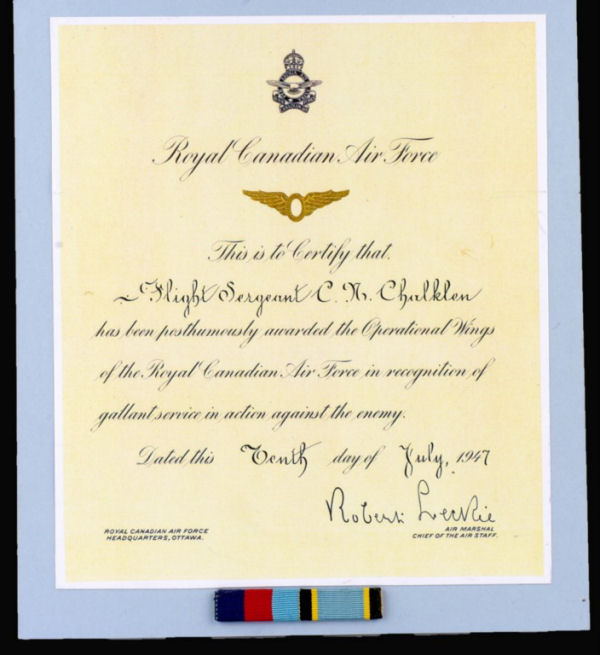 Royal Canadian Air Force
This is to Certify that
Flight Sergeant C. N. Chalklen
has been posthumously awarded the Operational Wings
of the Royal Canadian Air Force in recognition of
gallant service in action against the enemy.
Dated this Tenth day of July, 1947
Robert Leckie
ROYAL CANADIAN AIR FORCE
HEADQUARTERS, OTTAWA.
AIR MARSHAL
CHIEF OF THE AIR STAFF.